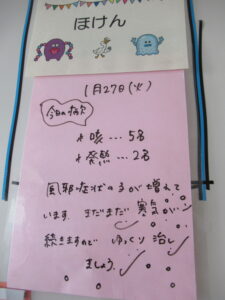 ほけん
1月27日(火)
今日の病欠
咳…5名
発熱…2名
風邪症状の子が増えて
います。まだまだ寒気が
続きますので ゆっくり 治し
ましょう